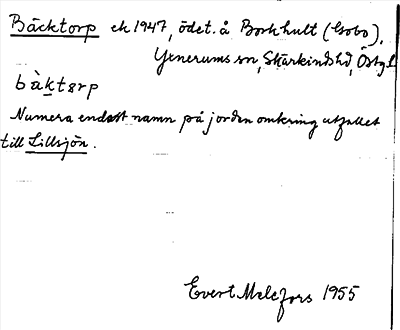 Bäcktorp ek 1947, ödet. å Borkhult (Gobo),
Yxnerums sn, Skärkinds hd, Östg l
bàktɘrp
Numera endast namn på jorden omkring utfallet
till Lillsjön.
Evert Melefors 1955